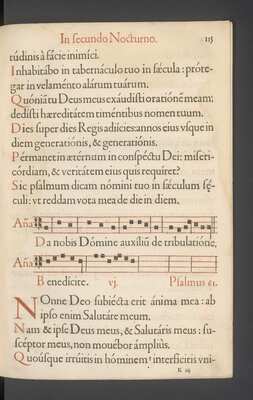 In secundo Nocturno. 115
túdinis à fácie inimíci.
Inhabitábo in tabernáculo tuo in sǽcula : próte-
gar in velaménto alárum tuárum.
Quóniã tu Deus meus exaudísti oratiónẽ meam:
dedísti hæreditátem timéntibus nomen tuum.
Dies super dies Regis adiícies: annos eius vsque in
diem generatiónis, & generatiónis.
Pérmanet in ætérnum in conspéctu Dei: miseri-
córdiam, & veritátem eius quis requíret?
Sic psalmum dicam nómini tuo in sǽculum sǽ-
culi: vt reddam vota mea de die in diem.
Aña
Da nobis Dómine auxiliũ de tribulatióne,
Aña
Benedicite. vj. Psalmus 61.
NOnne Deo subiécta erit ánima mea : ab
ipso enim Salutáre meum.
Nam & ipse Deus meus, & Salutáris meus : su-
scéptor meus, non mouébor ámpliùs.
Quoúsque irrúitis in hóminem : interfícitis vni-